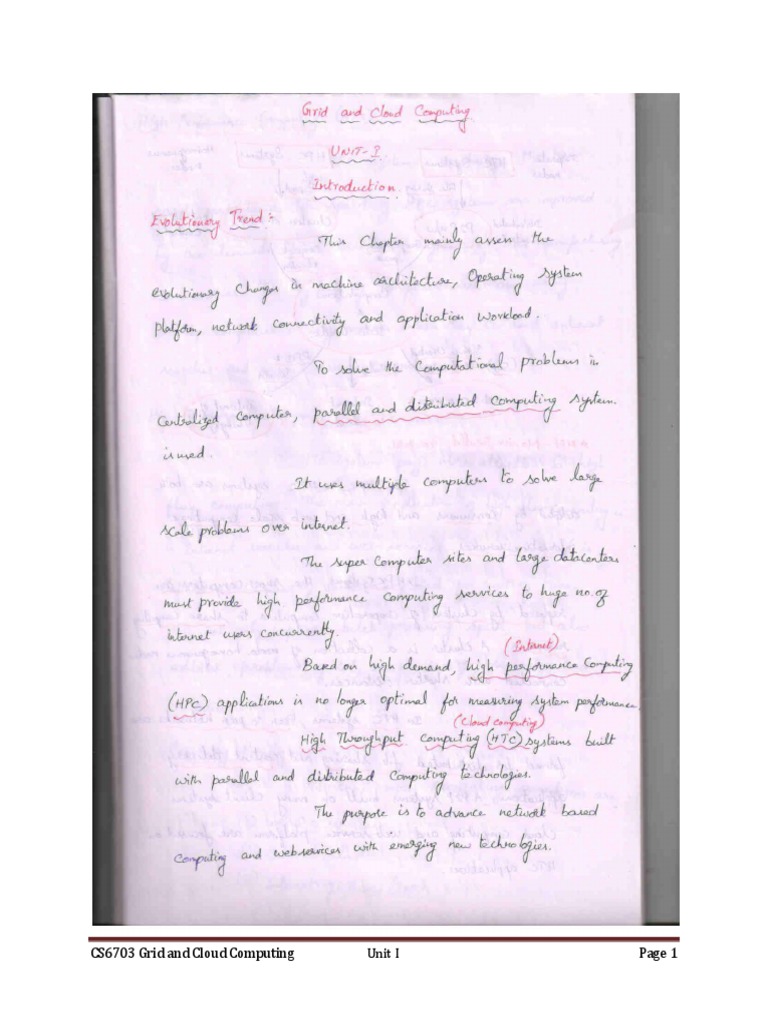 Grid and Cloud Computing
UNIT-I
Introduction.
Evolutionary Trend:-
This Chapter mainly assess the
evolutionary Changes in machine architecture, Operating system
platform, network connectivity and application workload.
To solve the Computational problems in
Centralized computer, parallel and distributed computing system
is used.
It uses multiple computers to solve large
scale problems over internet.
The super computer sites and large datacenters
must provide high performance computing services to huge no. of
internet users concurrently.
(Internet)
Based on high demand, high performance Computing
(HPC) applications is no longer optimal for measuring system performance.
(Cloud computing)
High Throughput Computing (HTC) systems built
with parallel and distributed Computing technologies.
The purpose is to advance network based
Computing and webservices with emerging new technologies.
CS6703 Grid and Cloud Computing Unit I Page 1